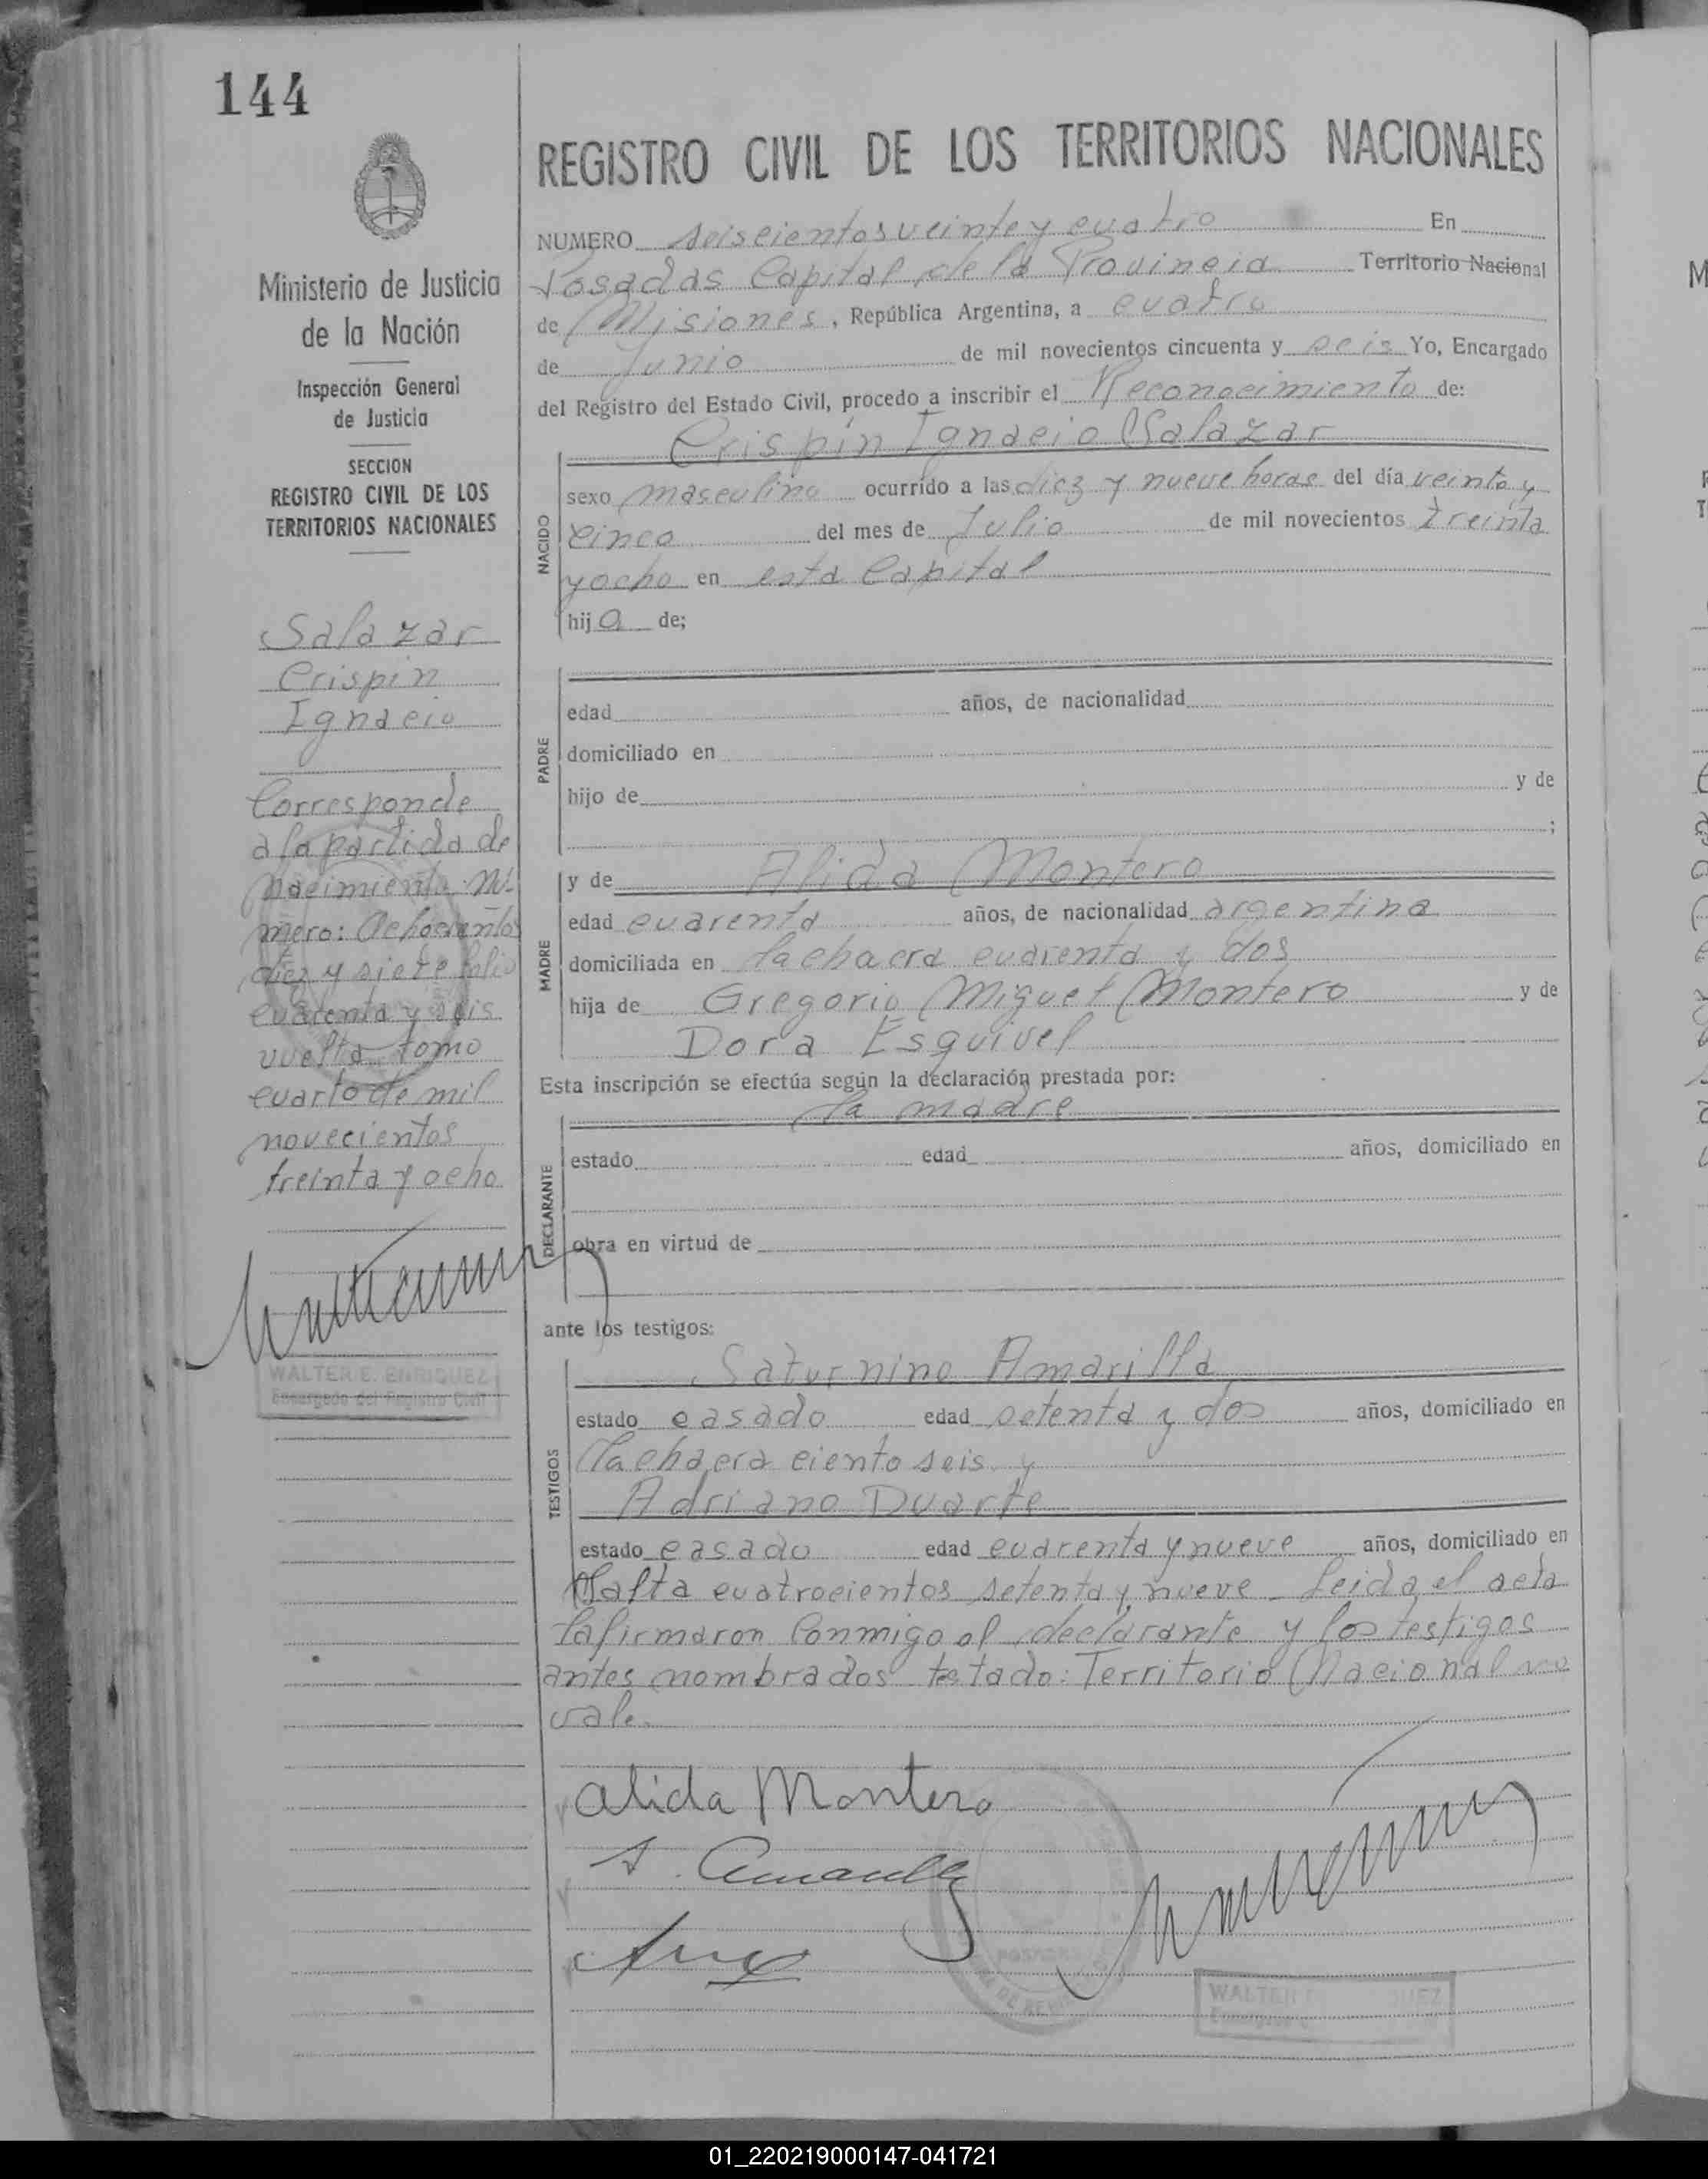 144
REGISTRO CIVIL DE LOS TERRITORIOS NACIONALES
NUMERO seiscientos veinte y cuatro En
Posadas Capital de la Provincia Territorio Nacional
de Misiones, República Argentina, a cuatro
de Junio de mil novecientos cincuenta y seis Yo, Encargado
del Registro del Estado Civil, procedo a inscribir el Reconocimiento de:
Crispin Ignacio Salazar
NACIDO
sexo masculino ocurrido a las diez y nueve horas del día veinte y
cinco del mes de Julio de mil novecientos treinta
y ocho en esta Capital
hijo de;
PADRE
edad años, de nacionalidad
domiciliado en
hijo de y de
;
MADRE
y de Alida Montero
edad cuarenta años, de nacionalidad argentina
domiciliada en la chacra cuarenta y dos
hija de Gregorio Miguel Montero y de
Dora Esquivel
Esta inscripción se efectúa según la declaración prestada por:
la madre
DECLARANTE
estado edad años, domiciliado en
obra en virtud de
ante los testigos:
TESTIGOS
Saturnino Amarilla
estado casado edad setenta y dos años, domiciliado en
la chacra ciento seis y
Adriano Duarte
estado casado edad cuarenta y nueve años, domiciliado en
cuatrocientos setenta y nueve Leida el acta
la firmaron Conmigo el declarante y los testigos
antes nombrados testado: Territorio Nacional no
vale.
Alida Montero
S. Amarilla
POSADAS
WALTER
Ministerio de Justicia
de la Nación
Inspección General
de Justicia
SECCION
REGISTRO CIVIL DE LOS
TERRITORIOS NACIONALES
Salazar
Crispin
Ignacio
Corresponde
a la partida de
Nacimiento Nú-
mero: Ochocientos
diez y siete folio
cuarenta y seis
vuelta tomo
cuarto de mil
novecientos
treinta y ocho
WALTER E. ENRIQUEZ
Encargado del Registro Civil
01_220219000147-041721